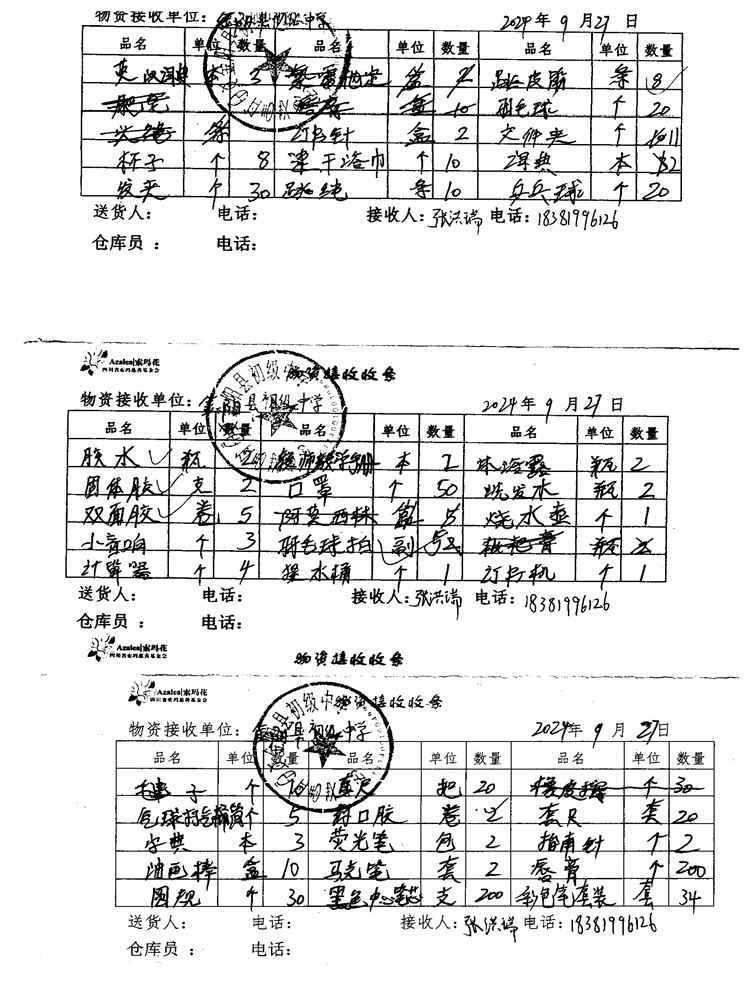 物资接收单位： 初级中学 2024年9月27日
品名 单位 数量 品名 单位 数量 品名 单位 数量
英汉词典 本 3 盒 2 跳皮筋 条 8
10 羽毛球 个 20
条 订书针 盒 2 文件夹 个 11
杯子 个 8 干浴巾 个 10 词典 本 2
发夹 个 30 跳绳 条 10 乒乓球 个 20
送货人： 电话： 接收人：张洪瑞 电话：18381996126
仓库员 ： 电话：
Azalea|索玛花
四川省索玛慈善基金会
物资接收收条
物资接收单位：金阳县初级中学 2024年9月27日
品名 单位 数量 品名 单位 数量 品名 单位 数量
胶水 瓶 2 本 2 沐浴露 瓶 2
固体胶 支 2 口罩 个 50 洗发水 瓶 2
双面胶 卷 5 阿莫西林 盒 5 烧水壶 个 1
小音响 个 3 羽毛球拍 副 5 瓶
计算器 个 4 提水桶 个 1 订书机 个 1
送货人： 电话： 接收人：张洪瑞 电话：18381996126
仓库员 ： 电话：
Azalea|索玛花
四川省索玛慈善基金会
物资接收收条
Azalea|索玛花
四川省索玛慈善基金会
物资接收收条
物资接收单位：金阳县初级中学 2024年9月27日
品名 单位 数量 品名 单位 数量 品名 单位 数量
毽子 个 10 直尺 把 20 个 30
气球打气筒 个 5 封口胶 卷 2 套尺 套 20
字典 本 3 荧光笔 包 2 指南针 个 2
油画棒 盒 10 马克笔 套 2 唇膏 个 200
圆规 个 30 黑色中心笔芯 支 200 彩色笔套装 套 34
送货人： 电话： 接收人：张洪瑞 电话：18381996126
仓库员 ： 电话：